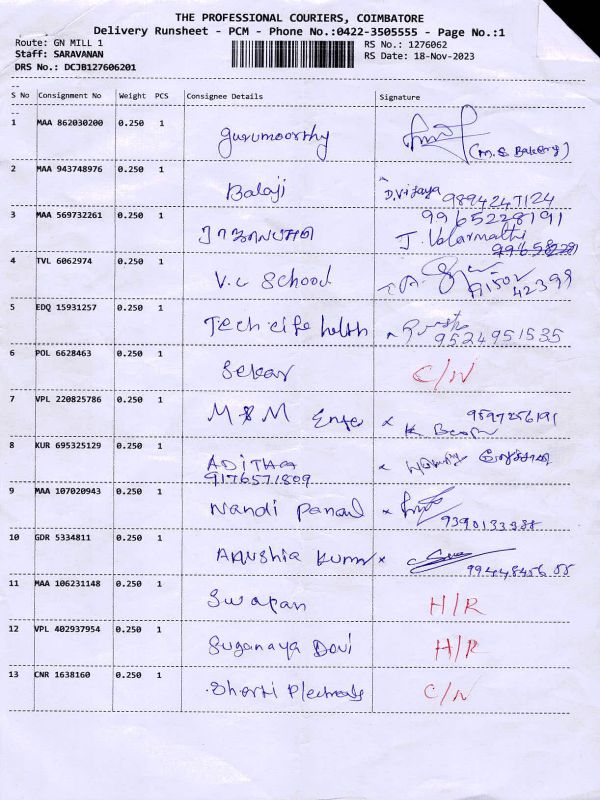 THE PROFESSIONAL COURIERS, COIMBATORE
Delivery Runsheet - PCM - Phone No.:0422-3505555 - Page No.:1
Route: GN MILL 1
RS No.: 1276062
Staff: SARAVANAN
RS Date: 18-Nov-2023
DRS No.: DCJB127606201
S No Consignment No Weight PCS Consignee Details Signature
1 MAA 862030200 0.250 1 Gurumoorthy (M.S Bakery)
2 MAA 943748976 0.250 1 Balaji D.Vijaya 9894247124
3 MAA 569732261 0.250 1 9965228191
J. Valarmathi
4 TVL 6062974 0.250 1 V.C School 91502
42399
5 EDQ 15931257 0.250 1 Tech life helth
9524951535
6 POL 6628463 0.250 1 Sekar C/N
7 VPL 220825786 0.250 1 M & M Ente x 9597256191
8 KUR 695325129 0.250 1 ADITHAA x
9176571809
9 MAA 107020943 0.250 1 Nandi x
9390133388
10 GDR 5334811 0.250 1 Anushia Kumar x
11 MAA 106231148 0.250 1 Swapan H/R
12 VPL 402937954 0.250 1 Suganaya Devi H/R
13 CNR 1638160 0.250 1 C/N